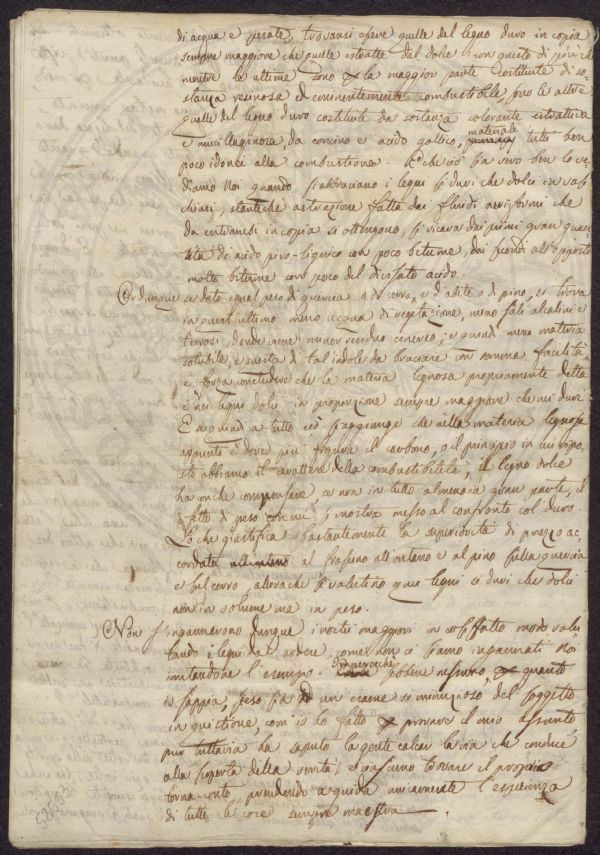 di acqua e pesate, trovansi essere quelle del legno duro in copia
sempre maggiore che quelle estratte dal dolce; con questo di più
mentre le ultime sono per la maggior parte costituite di so-
stanza resinosa ed eminentemente combustibile, sono le altre
quelle del legno duro costituite da sostanza colorante estrattiva
e mucilaginosa, da concino e acido gallico, materiali tutti ben
poco idonei alla combustione. E che ciò sia vero ben lo ve-
diamo noi quando si abbruciano i legni sì duri che dolci in vasi
chiusi, stanteche astrazione fatta dai fluidi aeriformi che
da entrambi in copia si ottengono, si ricava dai primi gran quan-
tità di acido piro-lignico con poco bitume, dai secondi all'opposto
molto bitume con poco del divisato acido.
Or dunque se dato egual peso di quercia o di cerro, e d'abete o di pino, si trova
in quest'ultimo meno acqua di vegetazione, meno sali alcalini e
terrosi, donde viene minor residuo cinereo; e quindi meno materia
solubile, e questa di tal indole da bruciare con somma facilità
è forza conchiudere che la materia legnosa propriamente detta
è nei legni dolci in proporzione sempre maggiore che nei duri
E se quindi a tutto ciò s'aggiunge che nella materia legnosa
appunto è dove più figura il carbono, o il principio in cui ripo-
sto abbiamo il carattere della combustibilità, il legno dolce
ha onde compensare, se non in tutto almeno in gran parte, il
difetto di peso con cui si mostra messo al confronto col duro.
Lo che giustifica bastantemente la superiorità di prezzo ac-
cordata al frassino all'ontano e al pino sulla quercia
e sul cerro, allorachè si valutino quei legni sì duri che dolci
non in volume ma in peso.
Non s'ingannarono dunque i nostri maggiori in così fatto modo valu-
tando i legni da ardere, come non ci siamo ingannati noi
imitandone l'esempio. Imperocchè sebbene nessuno, quanto
io sappia, siasi ad un esame sì minuzioso del soggetto
in quistione, com'io ho fatto per provare il mio assunto,
pur tuttavia ha saputo la gente calcar la via che conduce
alla scoperta della verità, e ciascuno trovare il proprio
torna conto, prendendo a guida unicamente l'esperienza
di tutte le cose sempre maestra